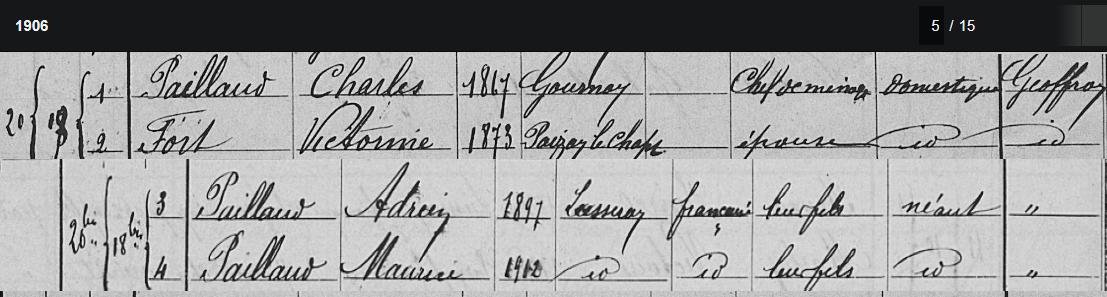 1906
5 / 15
20 18 1 Paillaud Charles 1867 Gournay Chef de ménage Domestique Geoffroy
2 Fort Victorine 1873 Paizay le Chapt épouse id id
20 bis 18 bis 3 Paillaud Adrien 1897 française leur fils néant "
4 Paillaud Maurice id id leur fils id "